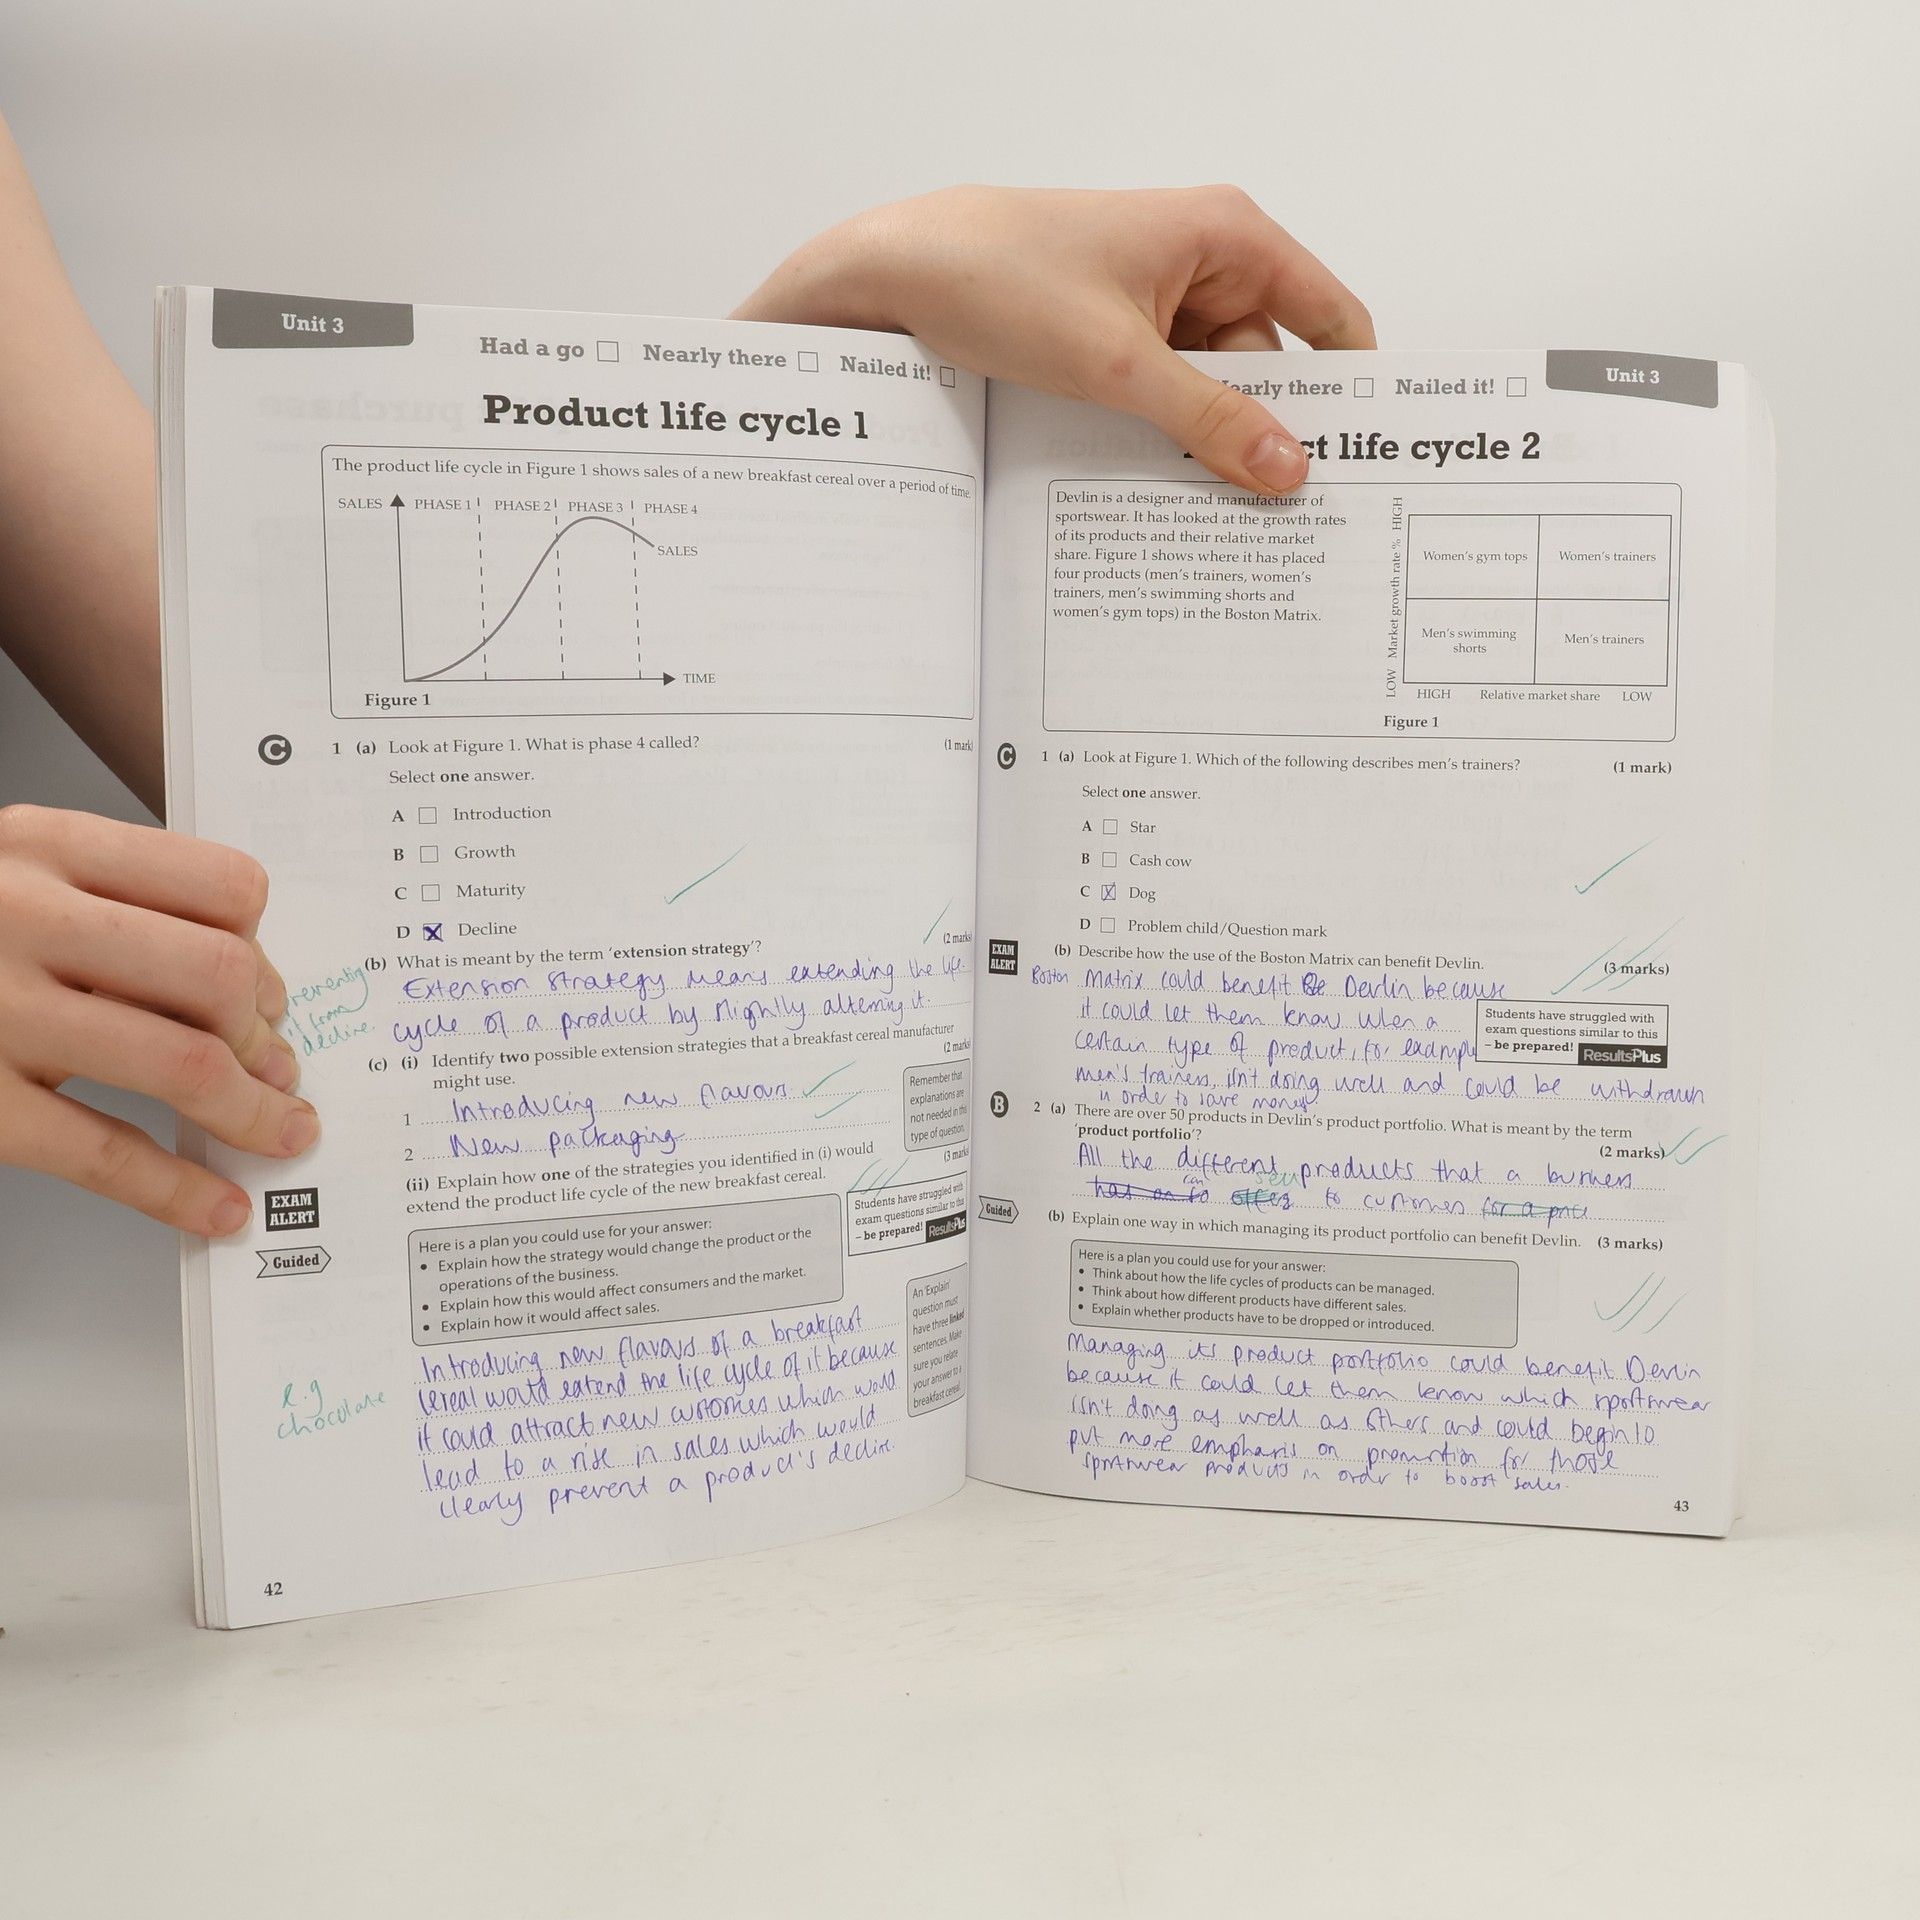 Unit 3
Had a go Nearly there Nailed it!
Product life cycle 1
The product life cycle in Figure 1 shows sales of a new breakfast cereal over a period of time.
SALES PHASE 1 PHASE 2 PHASE 3 PHASE 4
SALES
TIME
Figure 1
C 1 (a) Look at Figure 1. What is phase 4 called? (1 mark
Select one answer.
A Introduction
B Growth
C Maturity
D X Decline
(2 marks
(b) What is meant by the term 'extension strategy'?
Extension strategy means extending the life
cycle of a product by slightly altering it.
preventing
it from
decline.
(c) (i) Identify two possible extension strategies that a breakfast cereal manufacturer
might use. (2 marks
1 Introducing new flavours
2 New packaging
Remember that
explanations are
not needed in this
type of question.
(ii) Explain how one of the strategies you identified in (i) would
extend the product life cycle of the new breakfast cereal. (3 marks
EXAM
ALERT
Students have struggled with
exam questions similar to this
– be prepared! ResultsPlus
Guided
Here is a plan you could use for your answer:
• Explain how the strategy would change the product or the
operations of the business.
• Explain how this would affect consumers and the market.
• Explain how it would affect sales.
An 'Explain'
question must
have three linked
sentences. Make
sure you relate
your answer to a
breakfast cereal.
Introducing new flavours of a breakfast
cereal would extend the life cycle of it because
it could attract new customers which would
lead to a rise in sales which would
clearly prevent a product's decline.
e.g
chocolate
42
early there Nailed it!
Unit 3
ct life cycle 2
Devlin is a designer and manufacturer of
sportswear. It has looked at the growth rates
of its products and their relative market
share. Figure 1 shows where it has placed
four products (men's trainers, women's
trainers, men's swimming shorts and
women's gym tops) in the Boston Matrix.
LOW Market growth rate % HIGH
Women's gym tops Women's trainers
Men's swimming
shorts
Men's trainers
HIGH Relative market share LOW
Figure 1
C 1 (a) Look at Figure 1. Which of the following describes men's trainers? (1 mark)
Select one answer.
A Star
B Cash cow
C X Dog
D Problem child/Question mark
EXAM
ALERT
(b) Describe how the use of the Boston Matrix can benefit Devlin. (3 marks)
Boston Matrix could benefit Devlin because
it could let them know when a
certain type of product, for example
men's trainers, isn't doing well and could be withdrawn
in order to save money
Students have struggled with
exam questions similar to this
– be prepared! ResultsPlus
B 2 (a) There are over 50 products in Devlin's product portfolio. What is meant by the term
'product portfolio'? (2 marks)
All the different products that a business
has on to can offer sell to customers for a price
Guided
(b) Explain one way in which managing its product portfolio can benefit Devlin. (3 marks)
Here is a plan you could use for your answer:
• Think about how the life cycles of products can be managed.
• Think about how different products have different sales.
• Explain whether products have to be dropped or introduced.
Managing its product portfolio could benefit Devlin
because it could let them know which sportswear
isn't doing as well as others and could begin to
put more emphasis on promotion for those
sportswear products in order to boost sales.
43